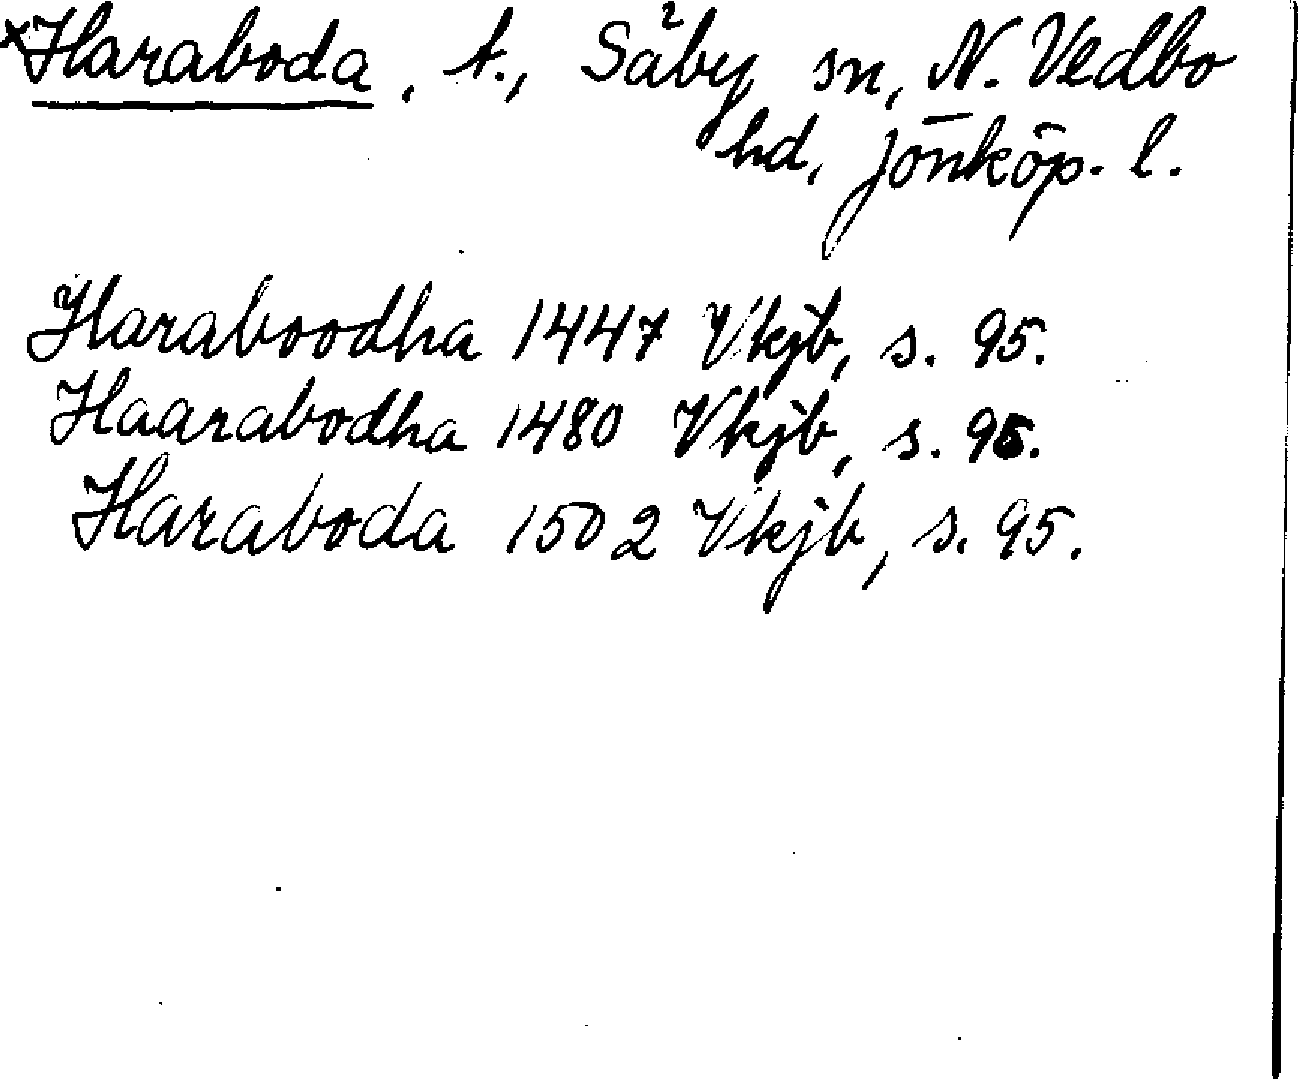 ×Haraboda, t., Säby sn, N. Vedbo
hd, Jönköp. l.
Haraboodha 1447 Vkjb, s. 95.
Haarabodha 1480 Vkjb, s. 95.
Haraboda 1502 Vkjb, s. 95.